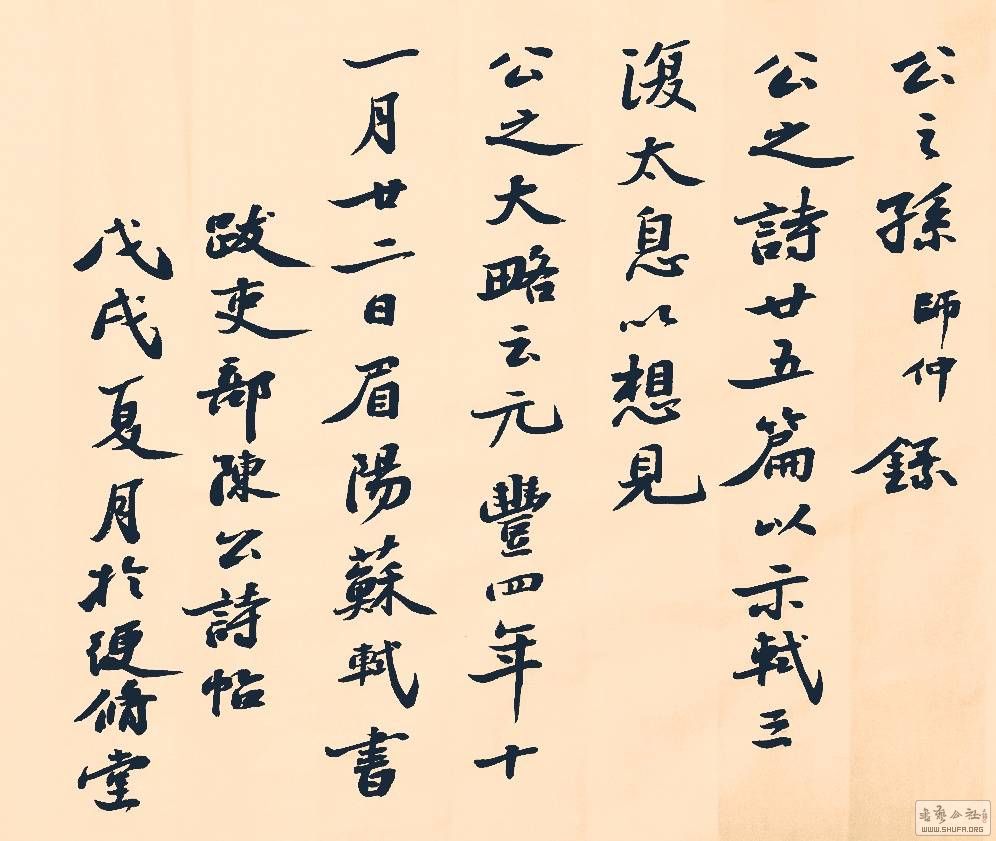 公之孫師仲錄
公之詩廿五篇以示軾三
復太息以想見
公之大略云元豐四年十
一月廿二日眉陽蘇軾書
跋吏部陳公詩帖
戊戌夏月於綆脩堂
WWW.SHUFA.ORG